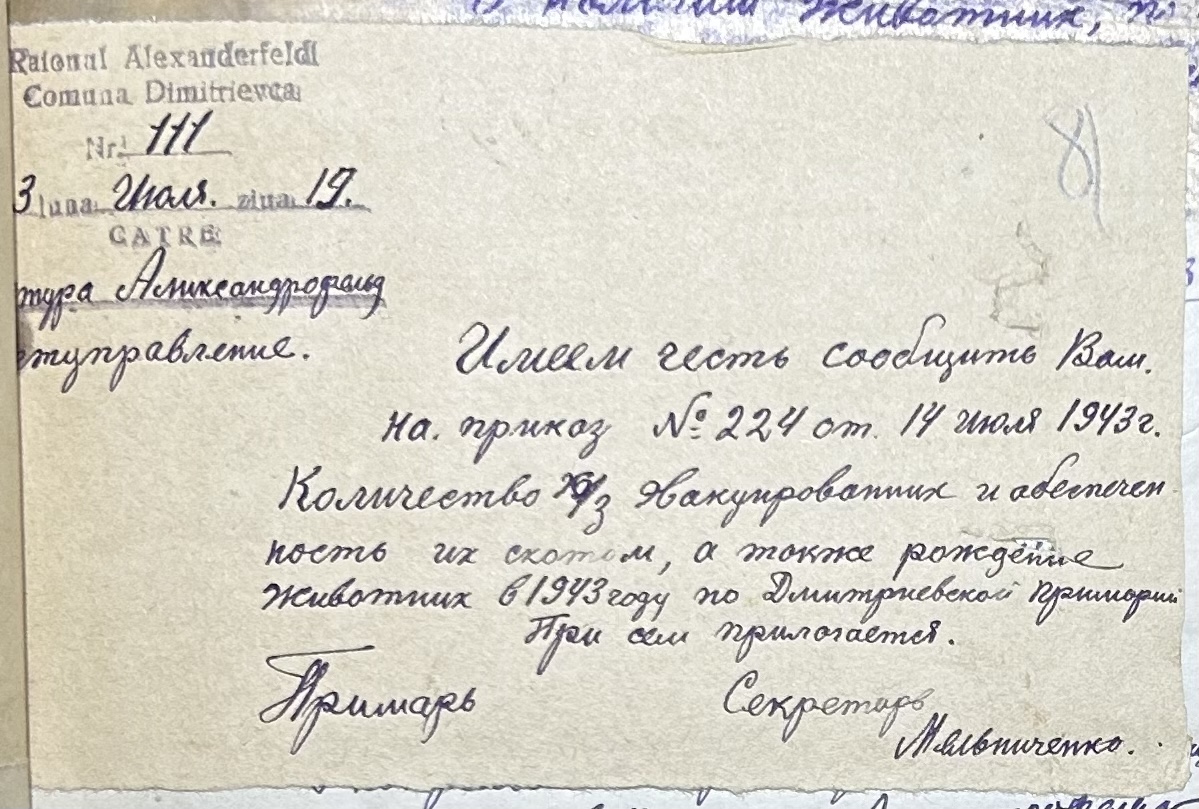 О наличии животних, по
Raionul Alexanderfeld
Comuna Dimitrievca
Nr. 111
3 luna Июля. ziua 19.
CATRE
тура Алиександрофельд
туправление.
81
Имеем честь сообщить Вам.
на. приказ № 224 от. 14 июля 1943г.
Количество х/з эвакуированних и абеспечен
ность их скотом, а также рождение
животних в 1943 году по Дмитриевской примарии
При сем прилогается.
Примарь Секретарь
Мельниченко.